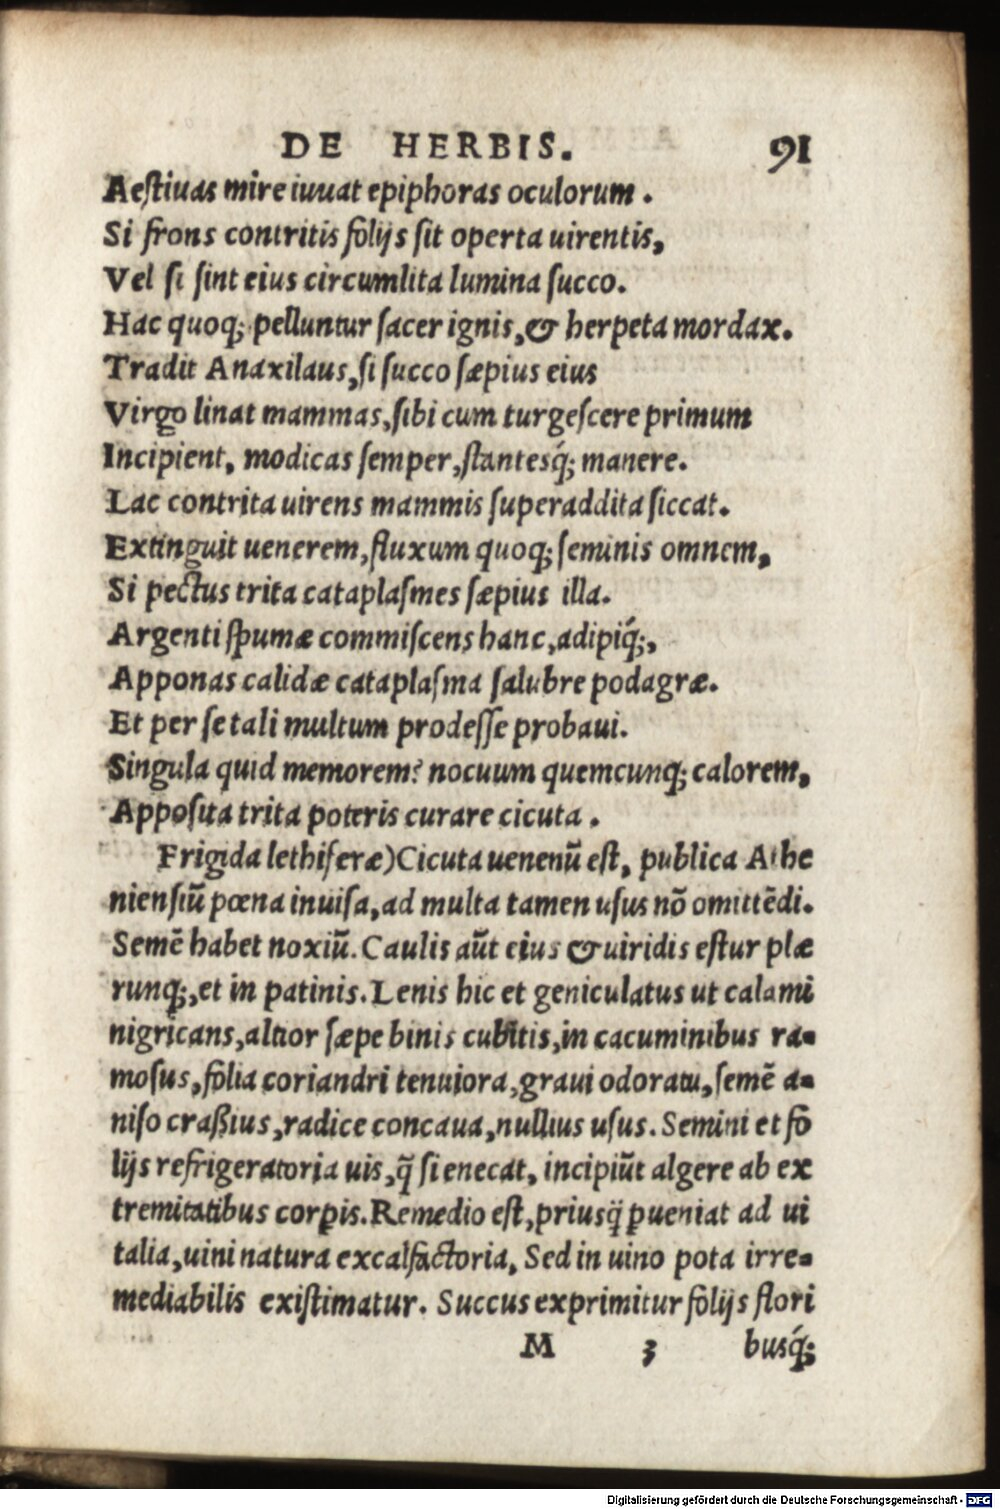 DE HERBIS. 91
Aeſtiuas mire iuuat epiphoras oculorum.
Si frons contritis folijs ſit operta uirentis,
Vel ſi ſint eius circumlita lumina ſucco.
Hac quoq; pelluntur ſacer ignis, & herpeta mordax.
Tradit Anaxilaus, ſi ſucco ſæpius eius
Virgo linat mammas, ſibi cum turgeſcere primum
Incipient, modicas ſemper, ſtantesq́; manere.
Lac contrita uirens mammis ſuperaddita ſiccat.
Extinguit uenerem, fluxum quoq; ſeminis omnem,
Si pectus trita cataplaſmes ſæpius illa.
Argenti ſpumæ commiſcens hanc, adipiq́;,
Apponas calidæ cataplaſma ſalubre podagræ.
Et per ſe tali multum prodeſſe probaui.
Singula quid memorem? nocuum quemcunq; calorem,
Appoſita trita poteris curare cicuta.
Frigida lethiferæ) Cicuta uenenū eſt, publica Athe
nienſiū pœna inuiſa, ad multa tamen uſus nō omittēdi.
Semē habet noxiū. Caulis aūt eius & uiridis eſtur plæ
runq;, et in patinis. Lenis hic et geniculatus ut calami
nigricans, altior ſæpe binis cubitis, in cacuminibus ra-
moſus, folia coriandri tenuiora, graui odoratu, ſemē a-
niſo craßius, radice concaua, nullius uſus. Semini et fo
lijs refrigeratoria uis, q̄ ſi enecat, incipiūt algere ab ex
tremitatibus corꝑis. Remedio eſt, priusq̄ ꝑueniat ad ui
talia, uini natura excalfactoria, Sed in uino pota irre-
mediabilis exiſtimatur. Succus exprimitur folijs flori
M 3 busq́;
Digitalisierung gefördert durch die Deutsche Forschungsgemeinschaft - DFG